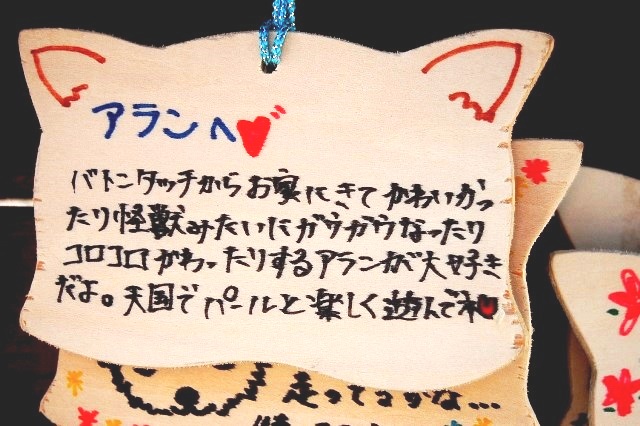 アランへ
バトンタッチからお家にきてかわいかっ
たり怪獣みたいにガウガウなったり
コロコロかわったりするアランが大好き
だよ。天国でパールと楽しく遊んでネ
走ってるかな...